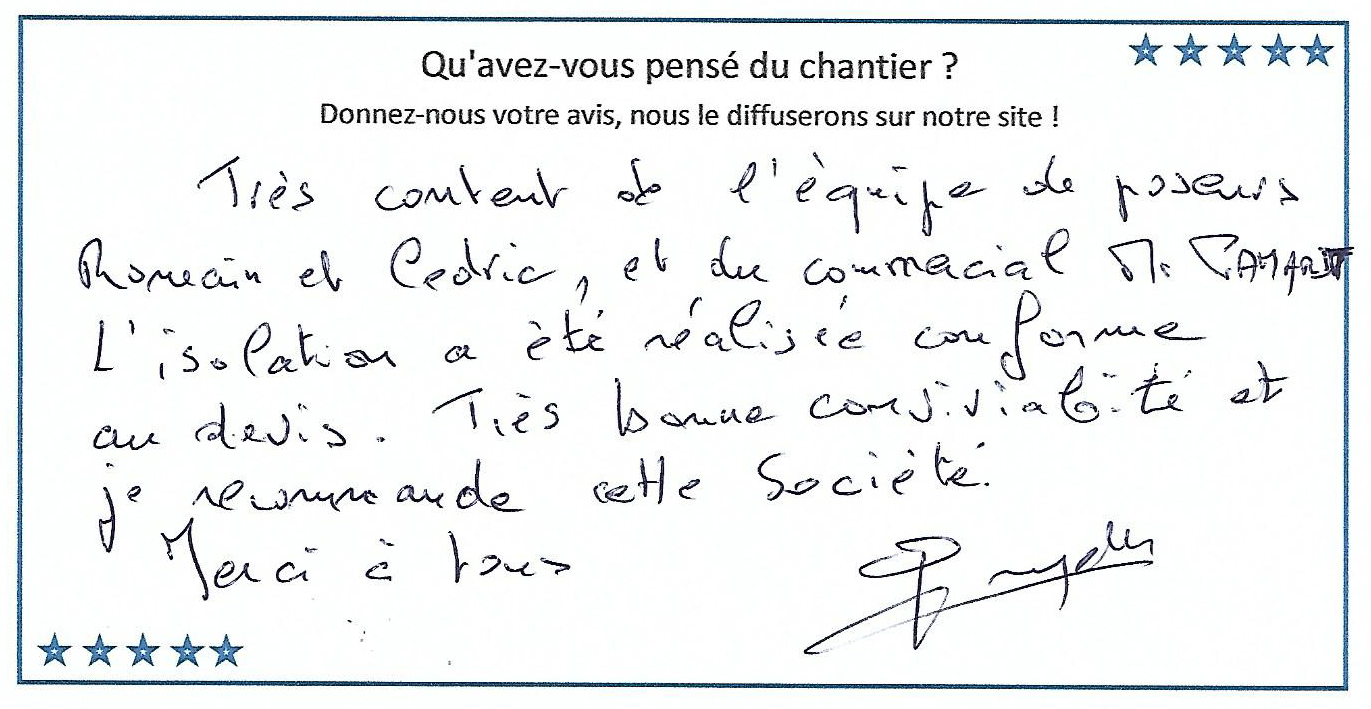 Qu'avez-vous pensé du chantier ?
Donnez-nous votre avis, nous le diffuserons sur notre site !
Très content de l'èquipe de poseurs
Romain et Cedric, et du commercial M.
L'isolation a èté réalisée conforme
au devis. Très bonne convivialité et
je recommande cette Société.
Merci à tous